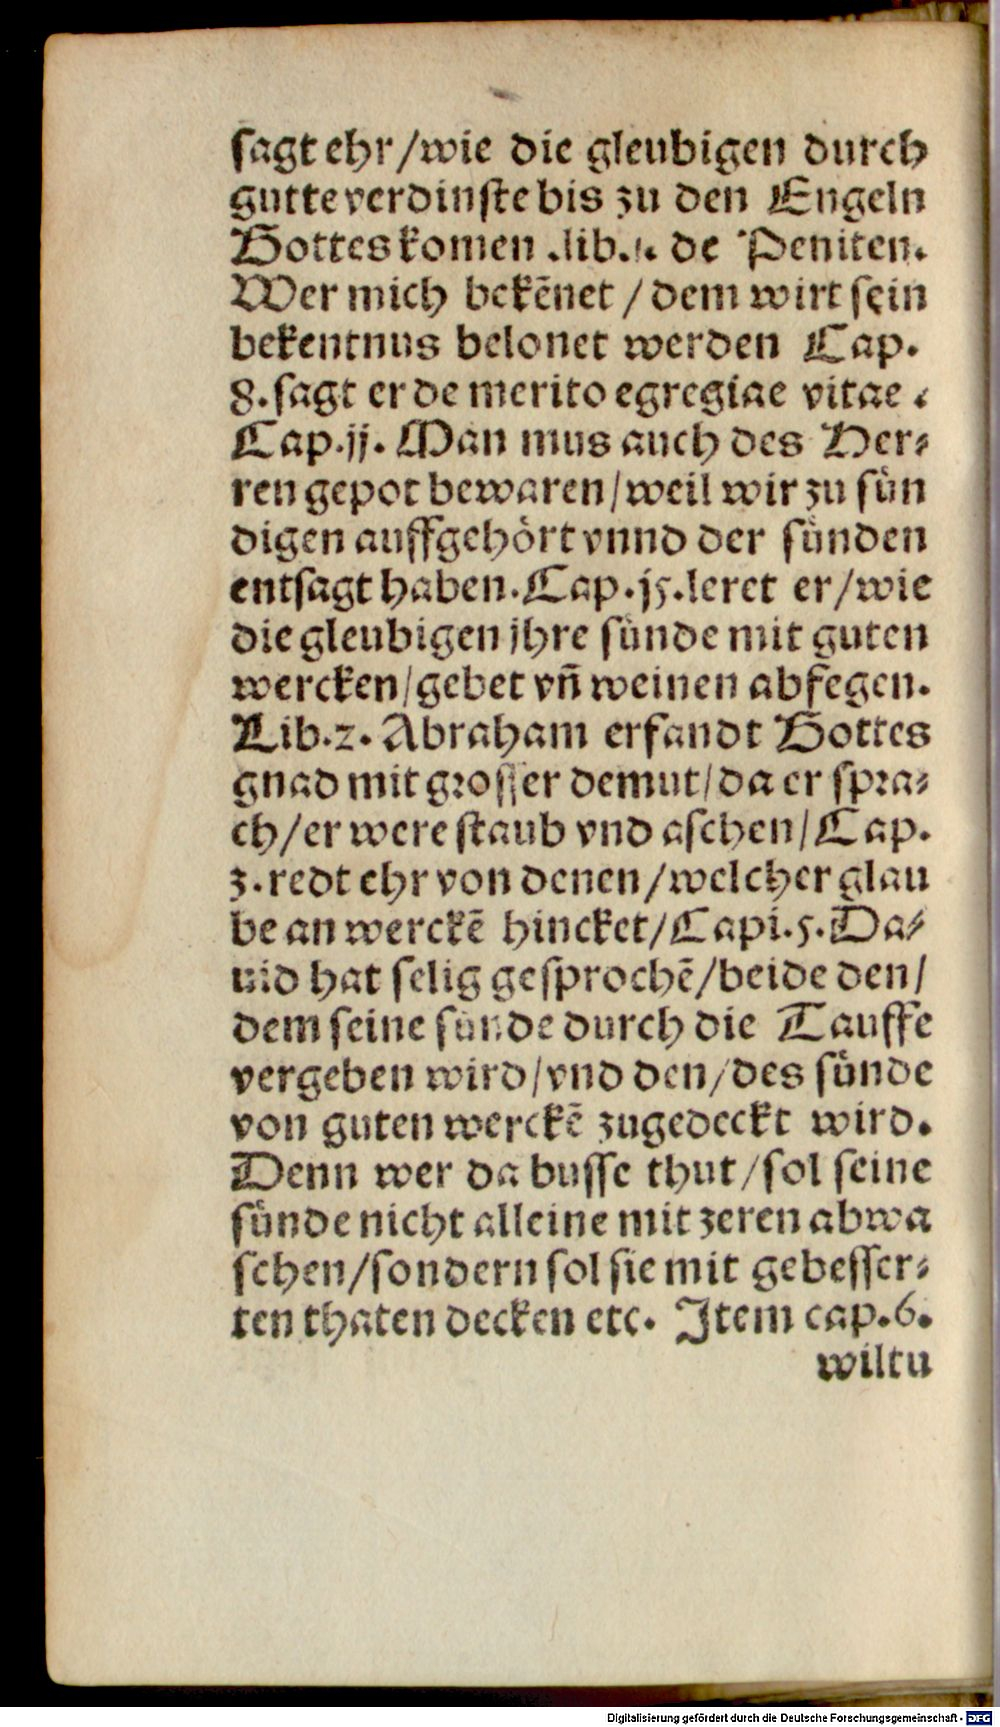 sagt ehr / wie die gleubigen durch
gutte verdinste bis zu den Engeln
Gottes komen .lib.j. de Peniten.
Wer mich bekēnet / dem wirt sein
bekentnus belonet werden Cap.
8. sagt er de merito egregiae vitae.
Cap.jj. Man mus auch des Her⸗
ren gepot bewaren / weil wir zu sün
digen auffgehört vnnd der sünden
entsagt haben. Cap.j5. leret er / wie
die gleubigen jhre sünde mit guten
wercken / gebet vn̄ weinen abfegen.
Lib.2. Abraham erfandt Gottes
gnad mit grosser demut / da er spra⸗
ch / er were staub vnd aschen / Cap.
3. redt ehr von denen / welcher glau
be an werckē hincket / Capi.5. Da⸗
uid hat selig gesprochē / beide den /
dem seine sünde durch die Tauffe
vergeben wird / vnd den / des sünde
von guten werckē zugedeckt wird.
Denn wer da busse thut / sol seine
sünde nicht alleine mit zeren abwa
schen / sondern sol sie mit gebesser⸗
ten thaten decken etc. Item cap.6.
wiltu
Digitalisierung gefördert durch die Deutsche Forschungsgemeinschaft - DFG